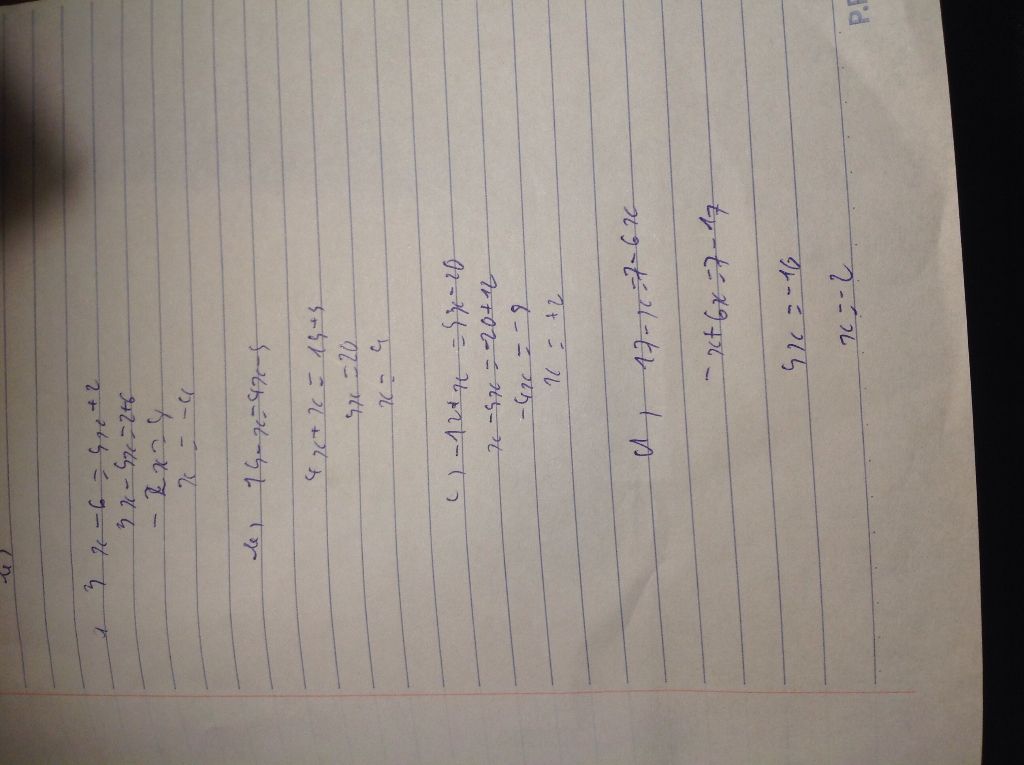 3x-6=5x+2
3x-5x=2+6
-2x=8
x=-4
b) 15-x=4x-5
4x+x=15+5
5x=20
x=4
c) -12+x=5x-20
x-5x=-20+12
-4x=-8
x=+2
d) 17-x=7-6x
-x+6x=7-17
5x=-10
x=-2